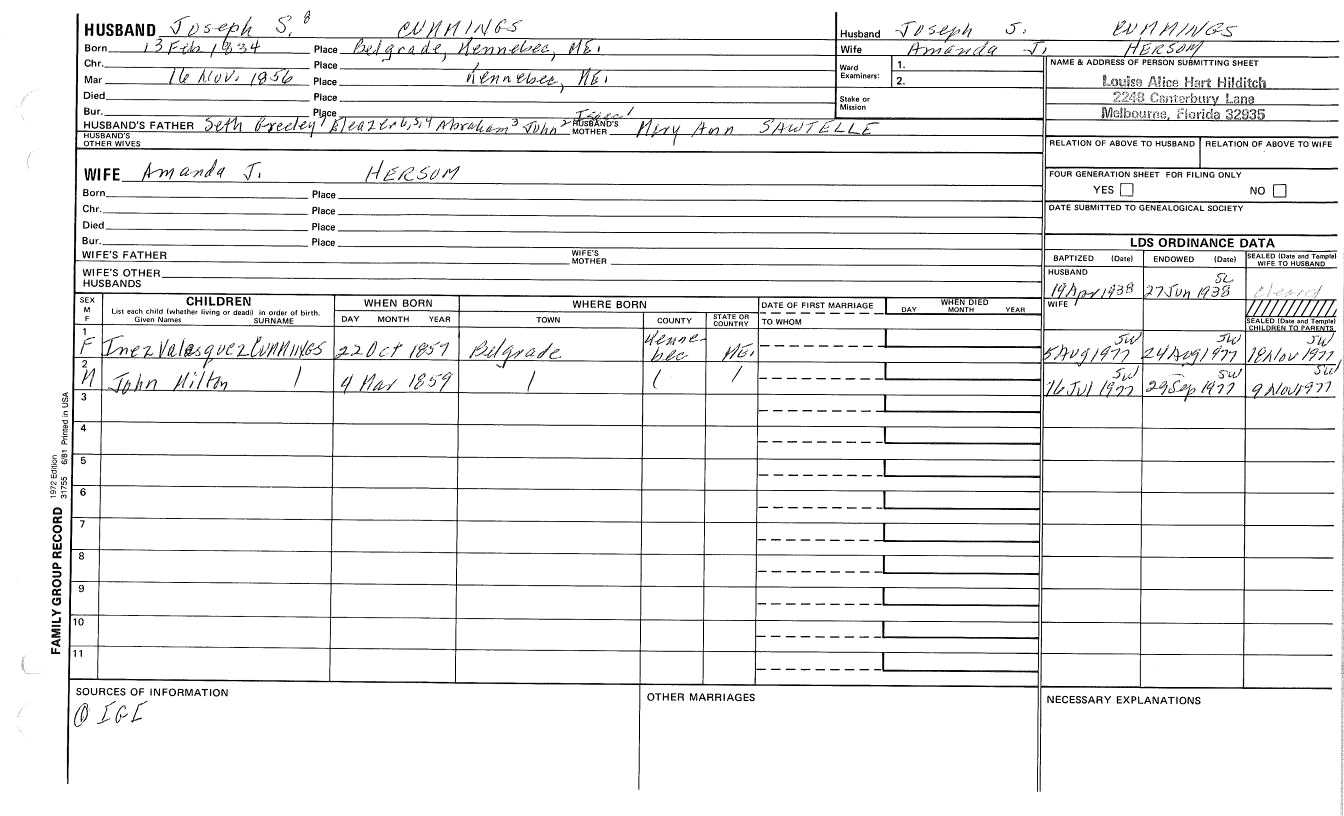 HUSBAND Joseph S. 8 CUMMINGS
Born 13 Feb 1834 Place Belgrade, Kennebec, ME.
Chr. Place
Mar 16 Nov. 1856 Place Kennebec, ME.
Died Place
Bur. Place
HUSBAND'S FATHER Seth Greeley 7 Eleazer 6,5,4 Abraham 3 John 2 Isaac 1 HUSBAND'S MOTHER Mary Ann SAWTELLE
HUSBAND'S OTHER WIVES
Husband Joseph S. CUMMINGS
Wife Amanda J. HERSOM
Ward Examiners: 1.
2.
Stake or Mission
NAME & ADDRESS OF PERSON SUBMITTING SHEET
Louise Alice Hart Hilditch
2248 Canterbury Lane
Melbourne, Florida 32935
RELATION OF ABOVE TO HUSBAND RELATION OF ABOVE TO WIFE
FOUR GENERATION SHEET FOR FILING ONLY
YES NO
DATE SUBMITTED TO GENEALOGICAL SOCIETY
WIFE Amanda J. HERSOM
Born Place
Chr. Place
Died Place
Bur. Place
WIFE'S FATHER WIFE'S MOTHER
WIFE'S OTHER HUSBANDS
LDS ORDINANCE DATA
BAPTIZED (Date) ENDOWED (Date) SEALED (Date and Temple) WIFE TO HUSBAND
HUSBAND
19 Apr 1938 27 Jun 1938 SL Cleared
WIFE
SEALED (Date and Temple) CHILDREN TO PARENTS
SEX M F CHILDREN WHEN BORN WHERE BORN DATE OF FIRST MARRIAGE WHEN DIED
List each child (whether living or dead) in order of birth.
Given Names SURNAME DAY MONTH YEAR TOWN COUNTY STATE OR COUNTRY TO WHOM DAY MONTH YEAR
1 F Inez Valasquez CUMMINGS 22 Oct 1857 Belgrade Kennebec ME. 5 Aug 1977 SW 24 Aug 1977 SW 18 Nov 1977 SW
2 M John Milton 4 Mar 1859 16 Jul 1977 SW 29 Sep 1977 SW 9 Nov 1977 SW
3
4
5
6
7
8
9
10
11
FAMILY GROUP RECORD 1972 Edition 31755 6/81 Printed in USA
SOURCES OF INFORMATION
① IGI
OTHER MARRIAGES
NECESSARY EXPLANATIONS